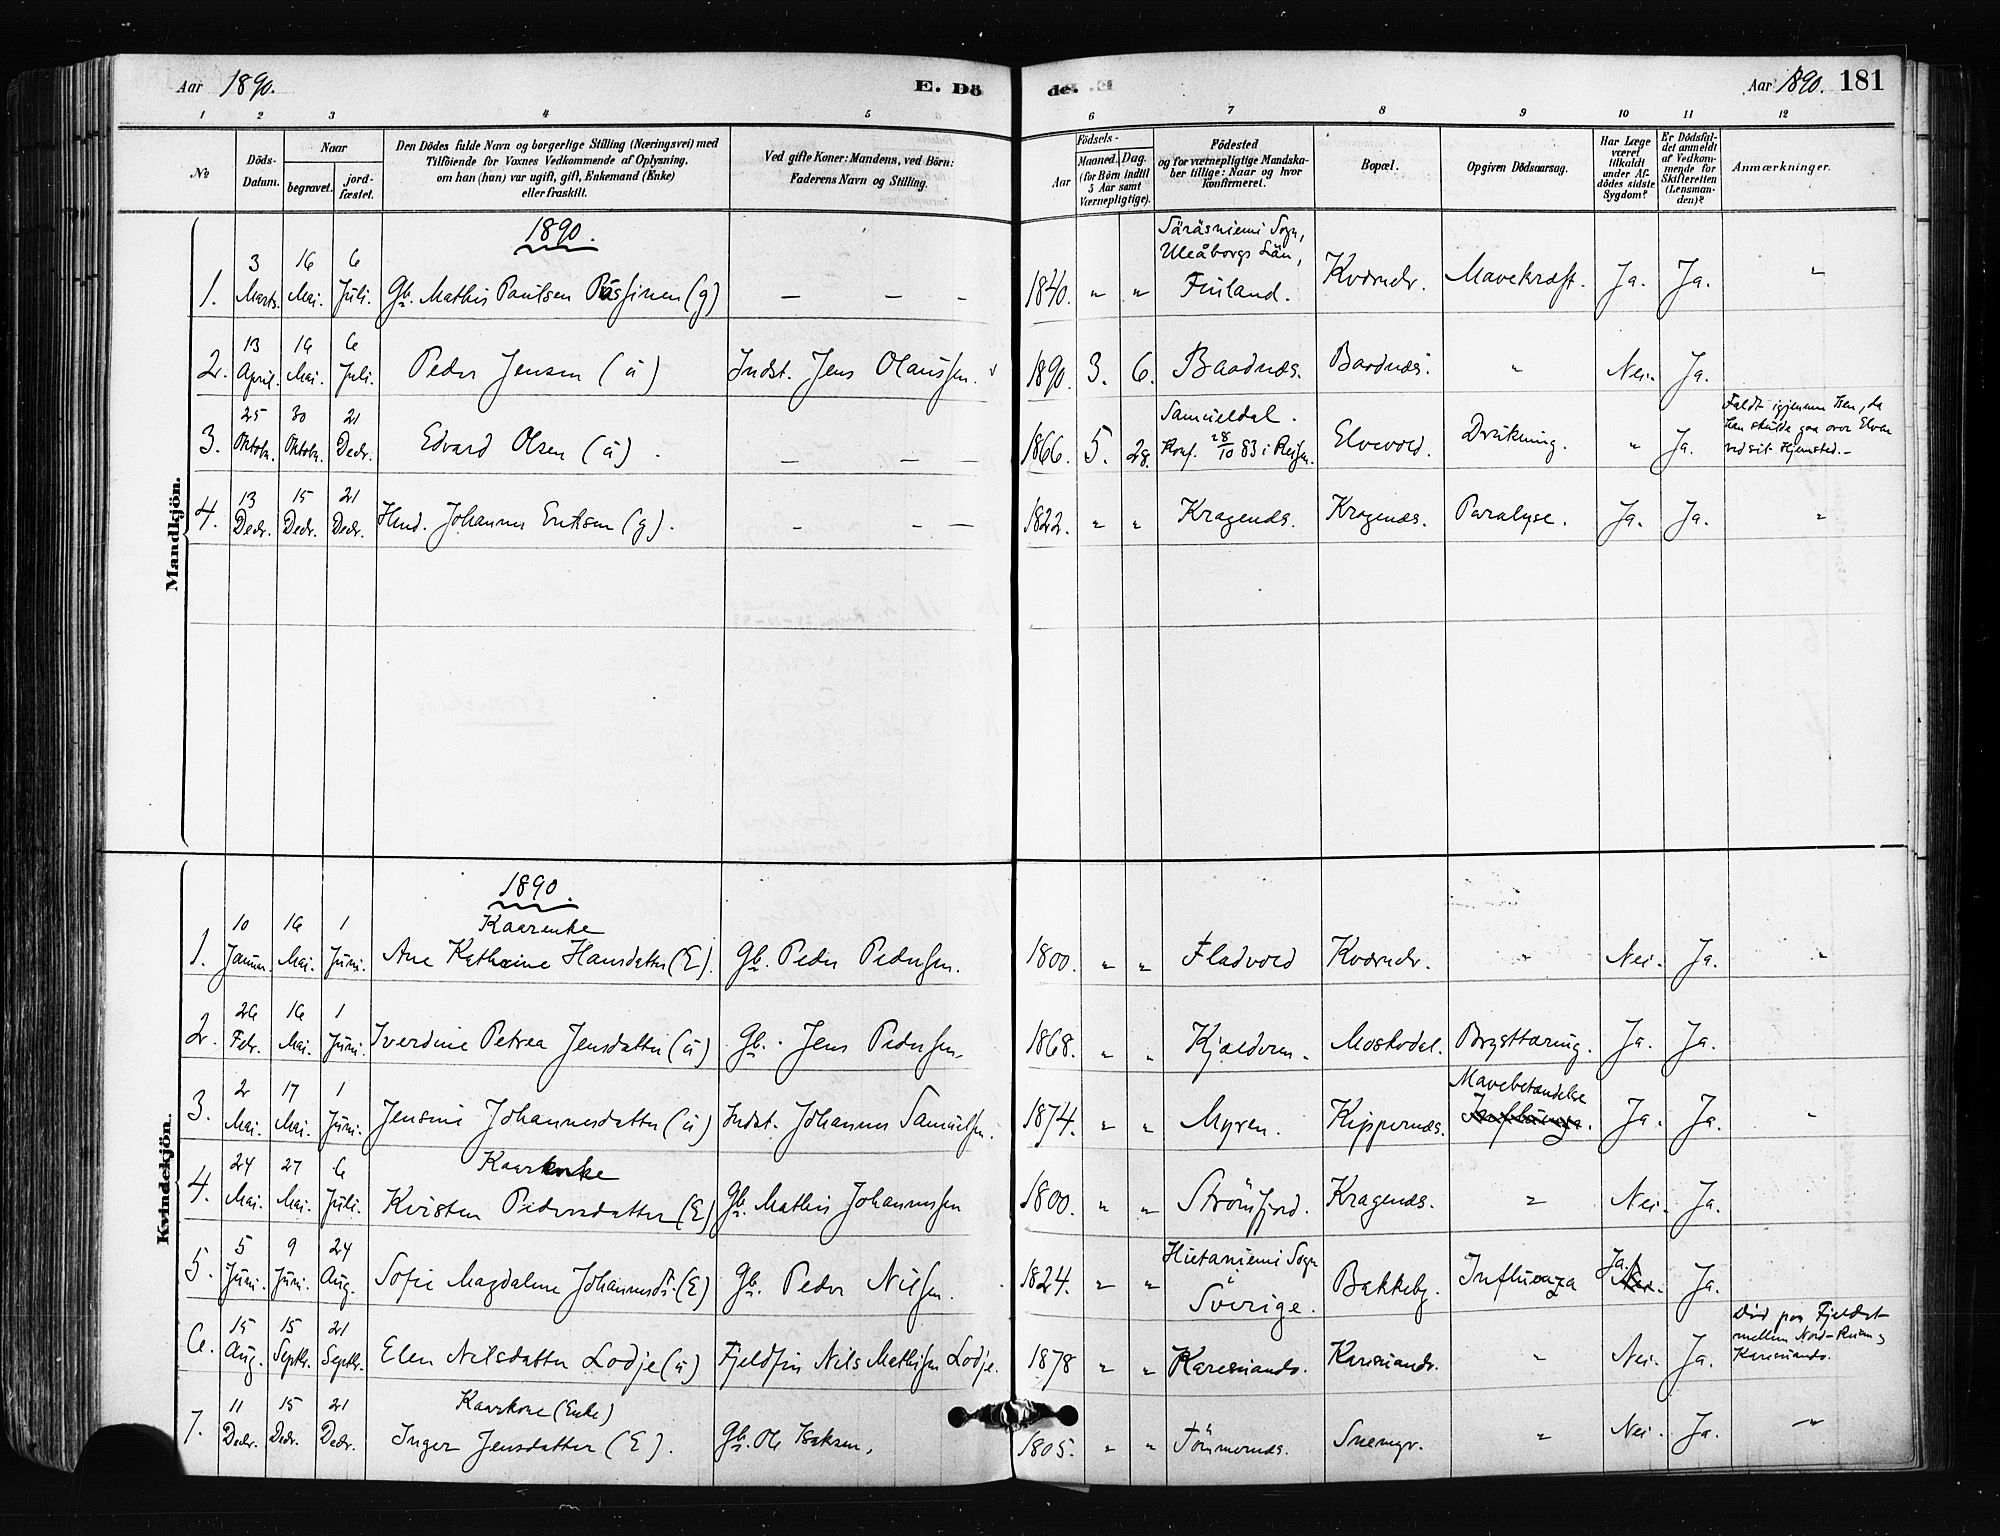 Aar 1890. E. Dö de. Aar 1890. 181
1 2 3 4 5 6 7 8 9 10 11 12
No
Döds-Datum.
Naar
begravet.
jord-fæstet.
Den Dödes fulde Navn og borgerlige Stilling (Næringsvei) med
Tilföiende for Voxnes Vedkommende af Oplysning,
om han (hun) var ugift, gift, Enkemand (Enke)
eller fraskilt.
Ved gifte Koner: Mandens, ved Börn:
Faderens Navn og Stilling.
Födsels-
Aar
Maaned. Dag.
(for Börn indtil
5 Aar samt
Værnepligtige).
Födested
og for værnepligtige Mandska-
ber tillige: Naar og hvor
konfirmeret.
Bopæl.
Opgiven Dödsaarsag.
Har Læge
været
tilkaldt
under Af-
dödes sidste
Sygdom?
Er Dödsfal-
det anmeldt
af Vedkom-
mende for
Skifteretten
(Lensman-
den)?
Anmærkninger.
Mandkjön.
1890.
1. 3 Marts. 16 Mai. 6 Juli. Gb. Mathis Paulsen (g) — — — 1840. " " Säräsniemi Sogn, Uleåborgs Län, Finland. Kvænelv. Mavekræft. Ja. Ja. "
2. 13 April. 16 Mai. 6 Juli. Peder Jensen (ú) Indst. Jens Olaussen. 1890. 3. 6. Baadnæs. Baadnæs. " Nei. Ja.
3. 25 Oktobr. 30 Oktobr. 21 Decbr. Edvard Olsen (ú). — — — 1866. 5. 28. Samueldal. Konf. 28/10 83 i Reisen. Elvevold. Drukning. " Ja. Faldt igjennem Isen, da han skulde gaa over Elven ved sit Hjemsted.—
4. 13 Decbr. 15 Decbr. 21 Decbr. Hmd. Johannes Eriksen (g). — — — 1822. " " Kragenæs. Kragenæs. Paralyse. Ja. Ja. "
Kvindekjön.
1890.
1. 10 Januar. 16 Mai. 1 Juni. Kaarenke Ane Kathrine Hansdatter (E). Gb. Peder Pedersen. 1800. " " Fladvold Kvænelv. " Nei. Ja. "
2. 26 Febr. 16 Mai. 1 Juni. Iverdine Petrea Jensdatter (ú) Gb. Jens Pedersen. 1868. " " Kjelderen. Moskodal. Brysttæring. Ja. Ja.
3. 2 Mai. 17 Mai. 1 Juni. Jensine Johannesdatter (ú) Indst. Johannes Samuelsen. 1874. " " Myren. Kippernæs. Mavebetændelse Influenza. Ja. Ja. "
4. 24 Mai. 27 Mai. 6 Juli. Kaarenke Kirsten Pedersdatter (E) Gb. Mathis Johannessen 1800. " " Strömfjord. Kragenæs. " Nei. Ja.
5. 5 Juni. 9 Juni. 24 Aug. Sofie Magdalene Johannesdtr. (E) Gb. Peder Nilsen. 1824. " " Hietaniemi Sogn i Sverige. Bakkeby. Influenza Ja. Nei. Ja.
6. 15 Aug. 15 Septbr. 21 Septbr. Elen Nilsdatter Lodje (ú) Fjeldfin Nils Mathisen Lodje. 1878 " " Karesuando. Karesuando. " Nei. Ja. Död paa Fjeldet mellem Nord-Reisen og Karesuando.
7. 11 Decbr. 15 Decbr. 21 Decbr. Kaarkone (Enke) Inger Jensdatter (E). Gb. Ole Isaksen, 1805. " " Tömmernæs. " Nei. Ja. "